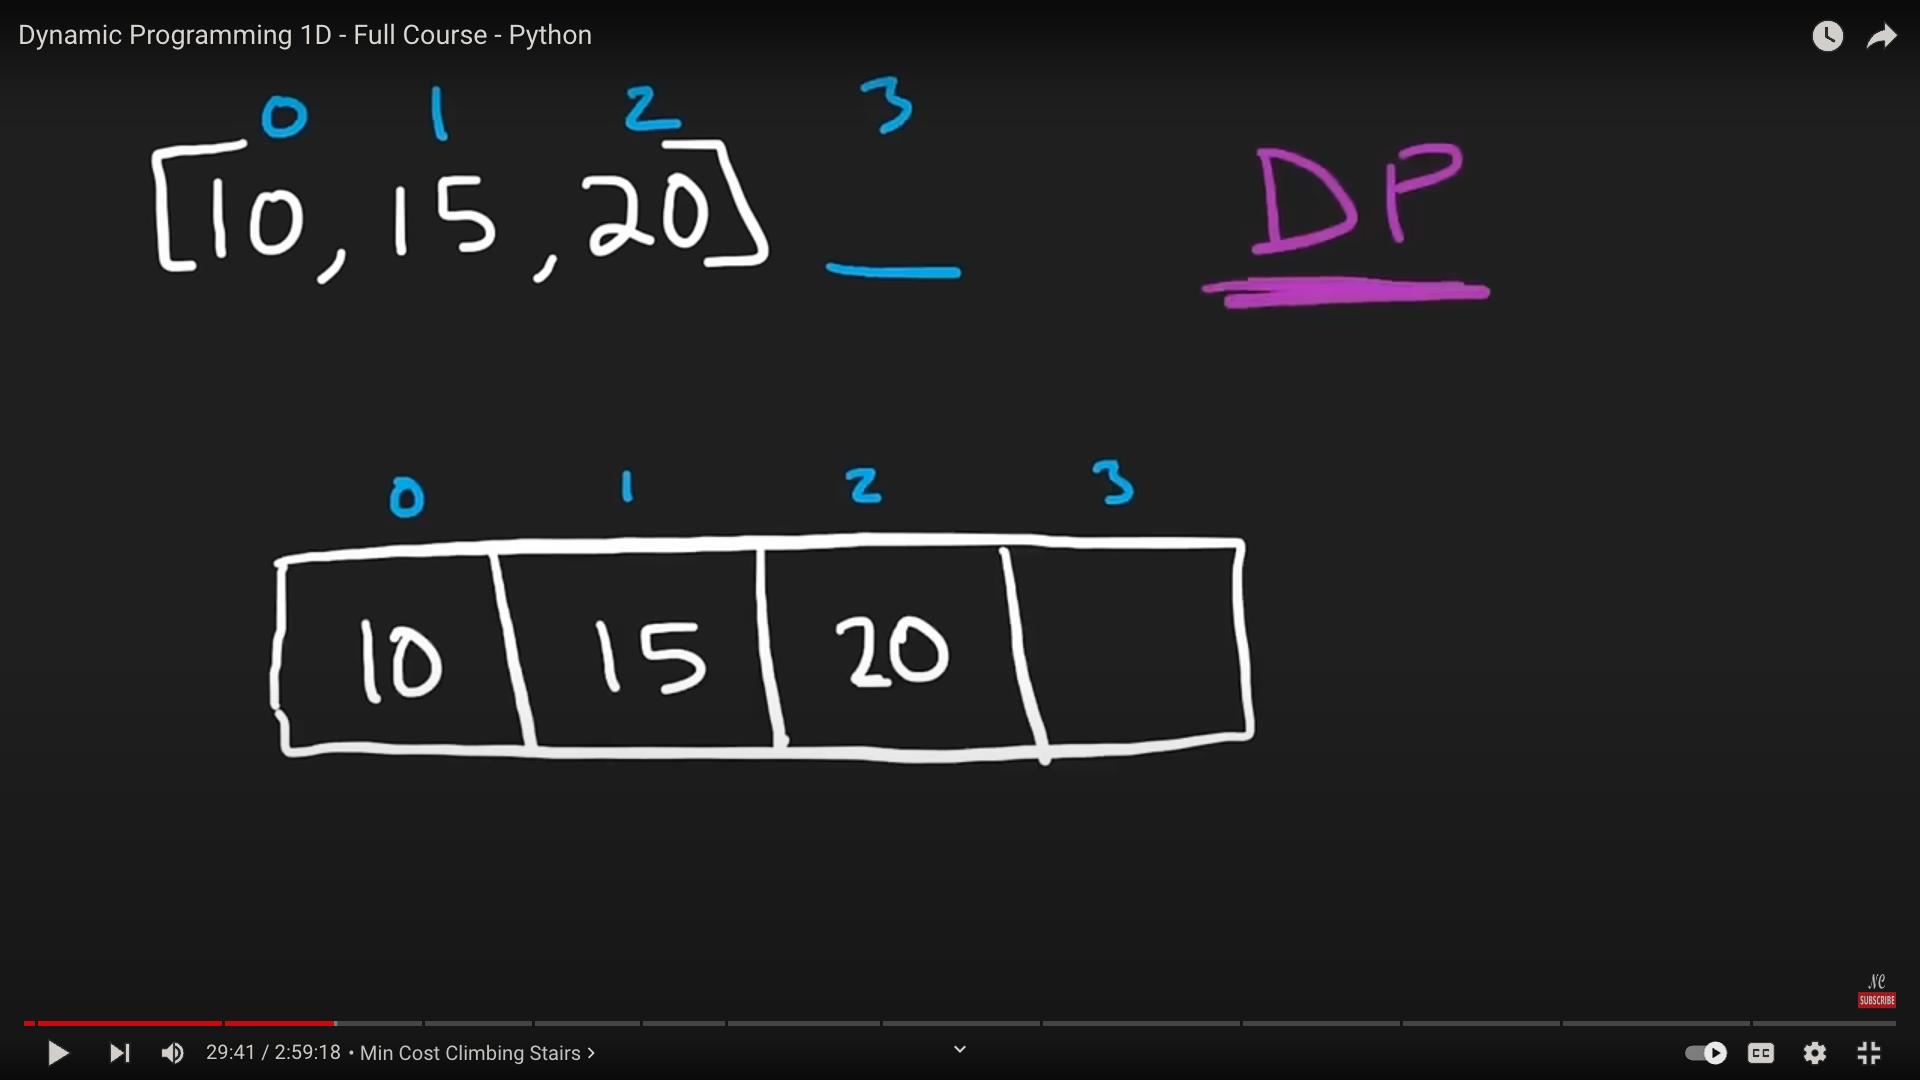 Dynamic Programming 1D - Full Course - Python
0 1 2 3
[10, 15, 20] __
DP
0 1 2 3
10 15 20
NC
SUBSCRIBE
29:41 / 2:59:18 • Min Cost Climbing Stairs >
CC